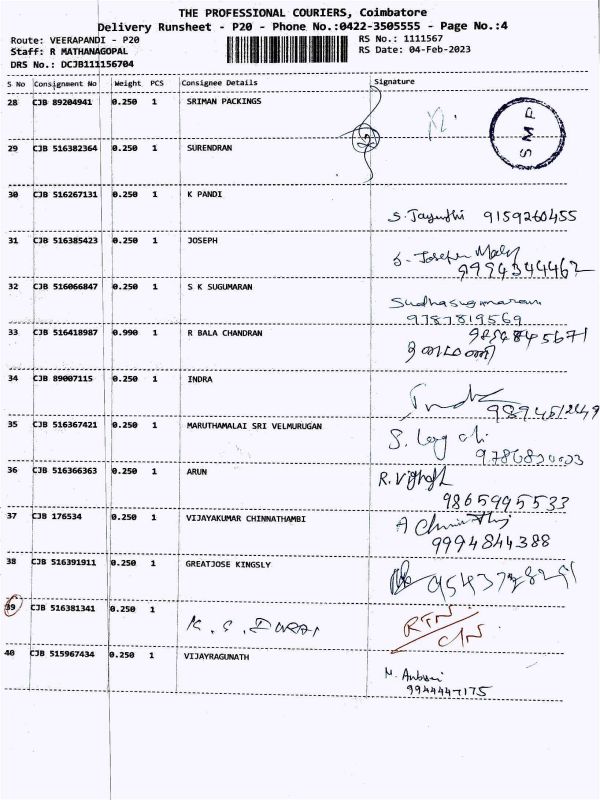 THE PROFESSIONAL COURIERS, Coimbatore
Delivery Runsheet - P20 - Phone No.:0422-3505555 - Page No.:4
Route: VEERAPANDI - P20
RS No.: 1111567
Staff: R MATHANAGOPAL
RS Date: 04-Feb-2023
DRS No.: DCJB111156704
S No Consignment No Weight PCS Consignee Details Signature
28 CJB 89204941 0.250 1 SRIMAN PACKINGS
SMP
29 CJB 516382364 0.250 1 SURENDRAN
30 CJB 516267131 0.250 1 K PANDI
S. Jayanthi 9159260455
31 CJB 516385423 0.250 1 JOSEPH
9994344462
32 CJB 516066847 0.250 1 S K SUGUMARAN
Sudhasugumaran
9787819569
33 CJB 516418987 0.990 1 R BALA CHANDRAN
34 CJB 89007115 0.250 1 INDRA
35 CJB 516367421 0.250 1 MARUTHAMALAI SRI VELMURUGAN
36 CJB 516366363 0.250 1 ARUN
9865995533
37 CJB 176534 0.250 1 VIJAYAKUMAR CHINNATHAMBI
9994844388
38 CJB 516391911 0.250 1 GREATJOSE KINGSLY
39 CJB 516381341 0.250 1
K. S. DURAI
RTN
C/N
40 CJB 515967434 0.250 1 VIJAYRAGUNATH
9944447175